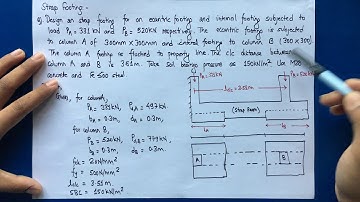 Strap Footing:-
Q. Design an strap footing for an eccentric footing and internal footing subjected to
load PA = 331 kN and PB = 520 kN respectively. The eccentric footing is subjected
to column A of 300mm x 300mm and internal footing to column B (300 x 300).
The column A footing is flushed to property line. The c/c distance between
column A and B is 3.51m. Take soil bearing pressure as 150 kN/m². Use M20
concrete and Fe 500 steel.
Given, for column,
PA = 331 kN, PuA = 497 kN
bA = 0.3m, dA = 0.3m.
for column B,
PB = 520 kN, PuB = 779 kN
bB = 0.3m, dB = 0.3m.
fck = 20 N/mm²
fy = 500 N/mm²
lc/c = 3.51 m
SBC = 150 kN/m²
PA = 331 kN
lc/c = 3.51m
(Strap Beam)
LA
LB
A
B